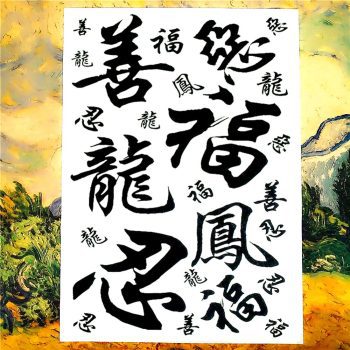 善 福
龍 龍
善 鳳
忍 龍 福 忍
龍 福 善
龍 鳳 忍
忍 龍 福 忍
忍 善 福 福